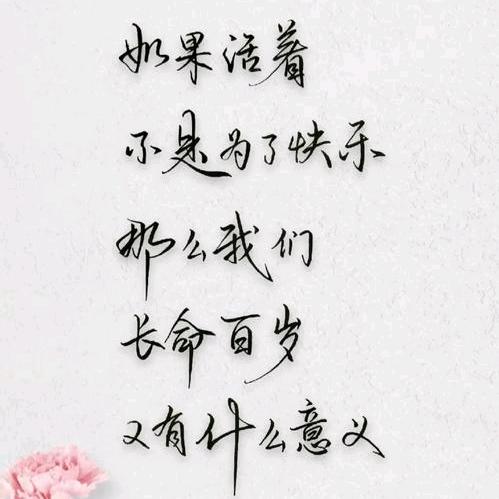 如果活着
不是为了快乐
那么我们
长命百岁
又有什么意义